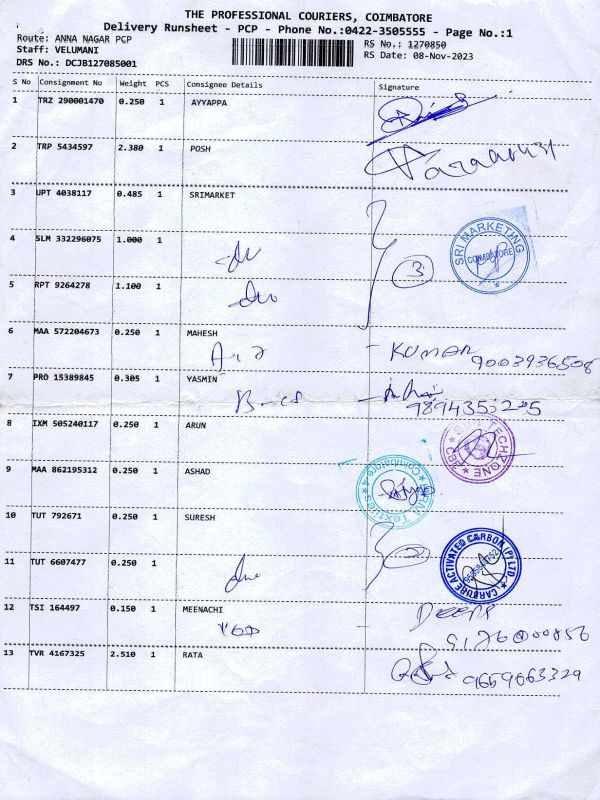 THE PROFESSIONAL COURIERS, COIMBATORE
Delivery Runsheet - PCP - Phone No.:0422-3505555 - Page No.:1
Route: ANNA NAGAR PCP RS No.: 1270850
Staff: VELUMANI RS Date: 08-Nov-2023
DRS No.: DCJB127085001
S No Consignment No Weight PCS Consignee Details Signature
1 TRZ 290001470 0.250 1 AYYAPPA
2 TRP 5434597 2.380 1 POSH
3 UPT 4038117 0.485 1 SRIMARKET
SRI MARKETING COIMBATORE
4 SLM 332296075 1.000 1
3
5 RPT 9264278 1.100 1
6 MAA 572204673 0.250 1 MAHESH
- KUMAR 9003936508
7 PRO 15389845 0.305 1 YASMIN
8 IXM 505240117 0.250 1 ARUN
9 MAA 862195312 0.250 1 ASHAD
Textiles
10 TUT 792671 0.250 1 SURESH
2
CARBURE ACTIVATED CARBON (P) LTD
11 TUT 6607477 0.250 1
12 TSI 164497 0.150 1 MEENACHI
13 TVR 4167325 2.510 1 RATA
9659063329